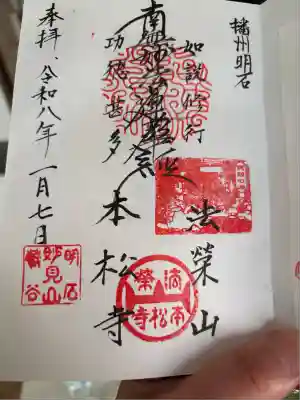 播州明石
如説修行
法榮山
南無妙法蓮華経
本松寺
功徳甚多
奉拝、令和八年一月七日
明石
妙見山
法榮山
本松寺